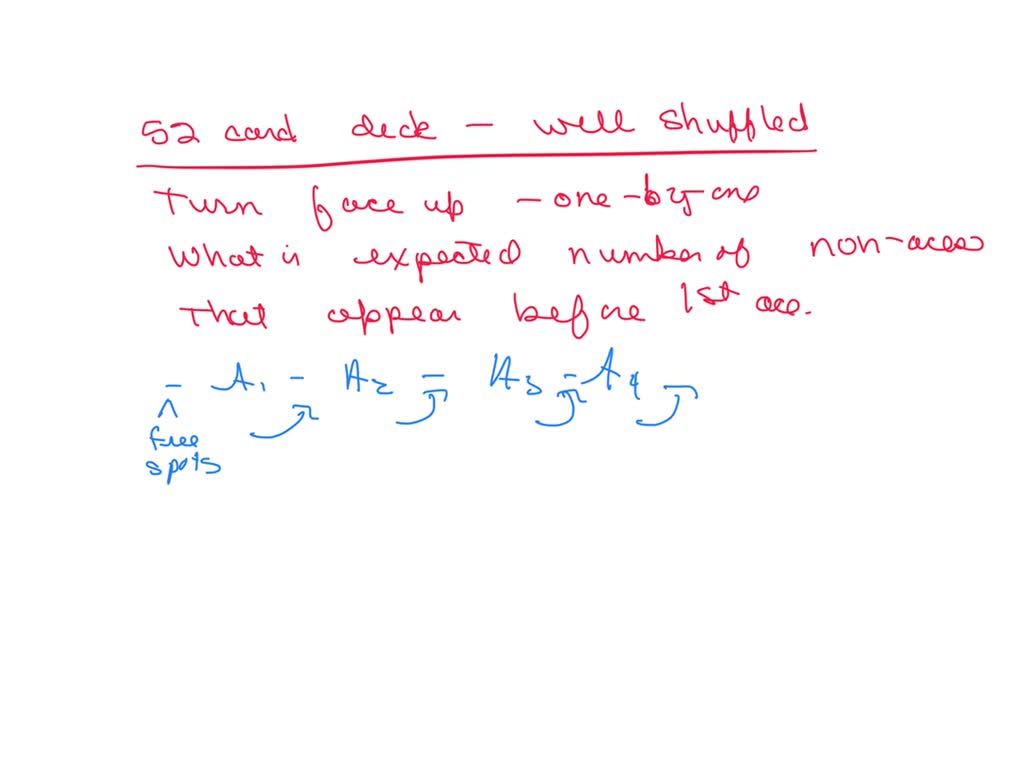 52 card deck - well shuffled
Turn face up - one-by-one
What is expected number of non-aces
That appear before 1st ace.
- A1 - A2 - A3 - A4 -
^
free
spots